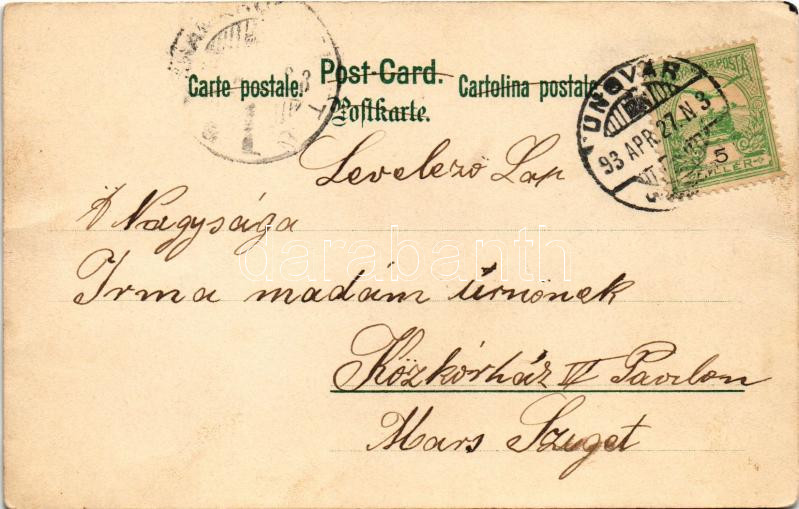 Carte postale. Post-Card. Cartolina postale
Postkarte.
UNGVÁR
93 APR. 27. N. 3
POSTA
5
Levelező Lap
Nagysága
Irma madám úrnőnek
Közkórház IV Pavilon
Mars Sziget
darabanth